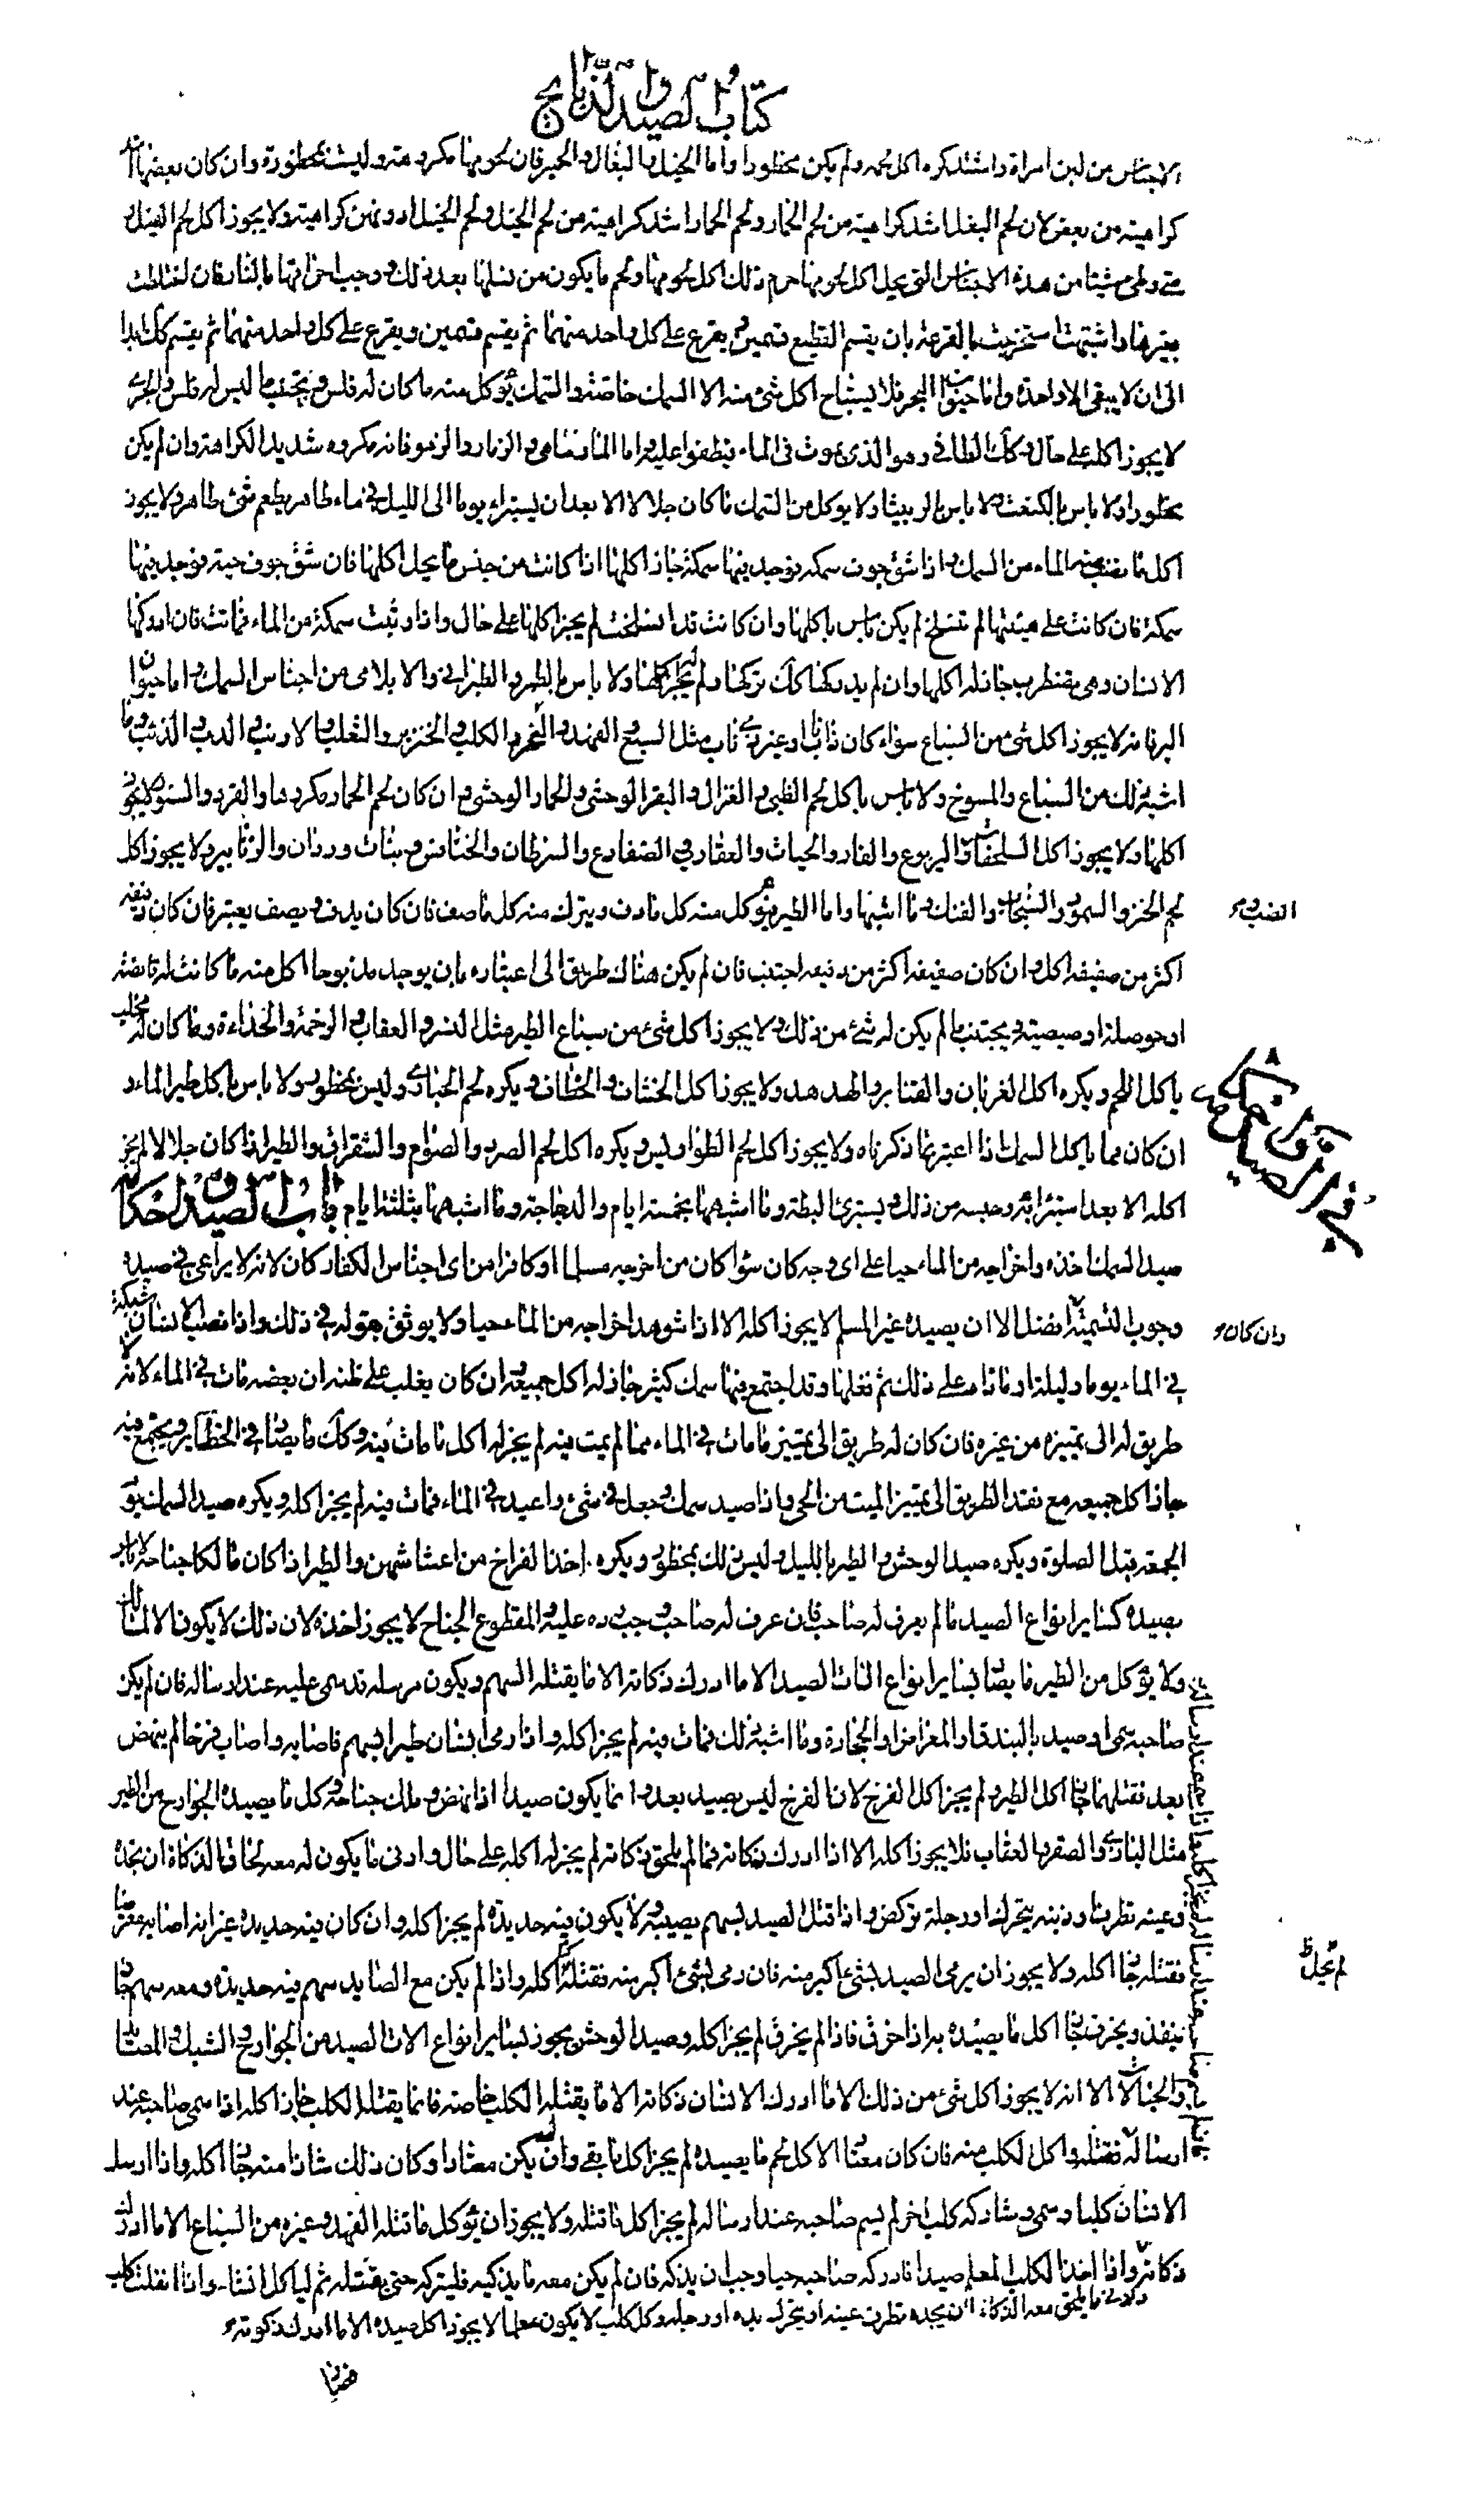 كتاب الصيد والذبايح
الاجناس من لبن امراة واشتد كره اكل لحمه ولم يكن محظورا واما الخيل والبغال والحمير فان لحومها مكروهة وليست بمحظورة وان كان بعضها اشد
كراهية من بعض لان لحم البغل اشد كراهية من لحم الحمار ولحم الحمار اشد كراهية من لحم الخيل ولحم الخيل ادونهن كراهية ولا يجوز اكل لحم الفيل و
متى وطئ شيئا من هذه الاجناس التي يحل اكل لحومها حرم ذلك اكل لحومها ولحم ما يكون من نسلها بعد ذلك ووجب احراقها بالنار فان اختلطت
بغيرها واشتبهت استخرجت بالقرعة بان يقسم القطيع قسمين ويقرع على كل واحد منهما ثم يقسم قسمين ويقرع على كل واحد منهما ثم يقسم كك ابدا
الى ان لا يبقى الا واحدة واما حيوان البحر فلا يستباح اكل شئ منه الا السمك خاصة والسمك يؤكل منه ما كان له فلس ويجتنب ما ليس له فلس والجري
لا يجوز اكله على حال وكك الطافي وهو الذي يموت في الماء فيطفوا عليه واما المارماهي والزمار والزهو فانه مكروه شديد الكراهة وان لم يكن
محظورا ولا باس بالكنعت ولا باس بالربيثا ولا يوكل من السمك ما كان جلالا الا بعد ان يستبراء يوما الى الليل في ماء طاهر يطعم شئ طاهر ولا يجوز
اكل ما نضب عنه الماء من السمك واذا شق جوف سمكه فوجد فيها سمكة جاز اكلها اذا كانت من جنس ما يحل اكلها فان شق جوف حية فوجد فيها
سمكة فان كانت على هيئتها لم تنسلخ لم يكن باس باكلها وان كانت قد انسلخت لم يجز اكلها على حال واذا وثبت سمكة من الماء فماتت فان ادركها
الانسان وهي تضطرب جاز له اكلها وان لم يدركها كك تركها ولم يجز له اكلها ولا باس بالطمر والطبراني والابلامي من اجناس السمك واما حيوان
البر فانه لا يجوز اكل شئ من السباع سواء كان ذا ناب او غير ذي ناب مثل السبع والفهد والنمر والكلب والخنزير والثعلب والارنب والدب والذئب وما
اشبه ذلك من السباع والمسوخ ولا باس باكل لحم الظبي والغزال والبقر الوحشي والحمار الوحشي وان كان لحم الحمار مكروها والقرد والسنور لا يجوز
اكلها ولا يجوز اكل السلحفاة واليربوع والفار والحيات والعقارب والضفادع والسرطان والخنافس وبنات وردان والزنابير ولا يجوز اكل
لحم الخز والسمور والسنجاب والفنك وما اشبهها واما الطير فيؤكل منه كل ما دف ويترك منه كل ما صف فان كان يدف ويصف يعتبر فان كان دفيفه
الضب و
اكثر من صفيفه اكل وان كان صفيفه اكثر من دفيفه اجتنب فان لم يكن هناك طريق الى اعتباره بان يوجد مذبوحا اكل منه ما كانت له قانصة
او حوصلة او صيصية ويجتنب ما لم يكن له شئ من ذلك ولا يجوز اكل شئ من سباع الطير مثل النسر والعقاب والرخمة والحداءة وما كان له مخلب
ياكل اللحم ويكره اكل الغربان والقنابر والهدهد ولا يجوز اكل الخشاف والخطاف ويكره لحم الحبارى وليس بمحظور ولا باس باكل طير الماء و
ان كان مما ياكل السمك اذا اعتبر بما ذكرناه ولا يجوز اكل لحم الطواويس ويكره اكل لحم الصرد والصوام والشقراق والطير اذا كان جلالا لم يجز
اكله الا بعد استبرائه وحبسه من ذلك ويستبرئ البطة وما اشبهها بخمسة ايام والدجاجة وما اشبهها بثلثة ايام باب الصيد واحكامه
صيد السمك اخذه واخراجه من الماء حيا على اي وجه كان سوا كان من اخرجه مسلما او كافرا من اي اجناس الكفار كان لانه لا يراعى في صيده
وجوب التسمية افضل الا ان يصيده غير المسلم لا يجوز اكله الا اذا شوهد اخراجه من الماء حيا ولا يوثق بقوله في ذلك واذا نصب الانسان شبكة
وان كان و
في الماء يوما وليلة او ما زاد على ذلك ثم نقلها وقد اجتمع فيها سمك كثير جاز له اكل جميعه وان كان يغلب على ظنه ان بعضه مات في الماء لانه لا
طريق له الى تمييزه من غيره فان كان له طريق الى تمييز ما مات في الماء مما لم يمت فيه لم يجز له اكل ما مات فيه وكك ما يصاد في الحظاير ويجتمع فيه
جاز اكل جميعه مع فقد الطريق الى تمييز الميت من الحي واذا صيد سمك وجعل في شئ واعيد في الماء فمات فيه لم يجز اكله ويكره صيد السمك يوم
الجمعة قبل الصلوة ويكره صيد الوحش والطير بالليل وليس ذلك بمحظور ويكره اخذ الفراخ من اعشاشهن والطير اذا كان مالكا جناحه لا باس
بصيده كساير انواع الصيد ما لم يعرف له صاحب فان عرف له صاحب وجب رده عليه والمقطوع الجناح لا يجوز اخذه لان ذلك لا يكون الا لمالك
ولا يؤكل من الطير ما يصاد بساير انواع الات الصيد الا ما ادرك ذكاته الا ما يقتله السهم ويكون مرسله قد سمى عليه عند ارساله فان لم يكن
صاحبه سمى او صيد بالبندق او المعراض او الحجارة وما اشبه ذلك فمات فيه لم يجز اكله واذا رمى انسان طيرا بسهم فاصابه واصاب فرخا لم ينهض
بعد فقتلهما جاز اكل الطير ولم يجز اكل الفرخ لان الفرخ ليس بصيد بعد وانما يكون صيدا اذا نهض وملك جناحه وكل ما يصيده الجوارح من الطير
مثل البازي والصقر والعقاب فلا يجوز اكله الا اذا ادرك ذكاته فما لم يلحق ذكاته لم يجز له اكله على حال وادنى ما يكون له معه لحاق الذكاة ان تجده
وعينه تطرف او ذنبه يتحرك او رجله تركض واذا قتل الصيد بسهم يصيبه ولا يكون فيه حديدة لم يجز اكله وان كان فيه حديدة غير انه اصابه معترضا
فقتله جاز اكله ولا يجوز ان يرمى الصيد بشئ اكبر منه فان رمى بشئ اكبر منه فقتله لم يجز اكله واذا لم يكن مع الصايد سهم فيه حديدة ومعه سهم حاد
لم يحل
ينفذ ويخرق جاز اكل ما يصيده به اذا خرق فاذا لم يخرق لم يجز اكله وصيد الوحش يجوز بساير انواع الات الصيد من الجوارح والشبك والمصايد
والحبالات الا انه لا يجوز اكل شئ من ذلك الا ما ادرك الانسان ذكاته الا ما يقتله الكلب خاصة فانما يقتله الكلب جاز اكله اذا سمى صاحبه عند
ارساله فقتله واكل الكلب منه فان كان معتادا لاكل لحم ما يصيده لم يجز اكل ما بقى وان لم يكن معتادا وكان ذلك شاذا منه جاز اكله واذا ارسل
الانسان كلبا وسمى وشاركه كلب اخر لم يسم صاحبه عند ارساله لم يجز اكل ما قتله ولا يجوز ان يؤكل ما قتله الفهد وغيره من السباع الا ما ادرك
ذكاته واذا اخذ الكلب المعلم صيدا فادركه صاحبه حيا وجب ان يذكه فان لم يكن معه ما يذكيه فليتركه حتى يقتله ثم لياكل ان شاء واذا انفلت كلب
وادنى ما يلحق معه الذكاة ان يجده تطرف عينه او يتحرك يده او رجله وكل كلب لا يكون معلما لا يجوز اكل صيده الا ما ادرك ذكوته و